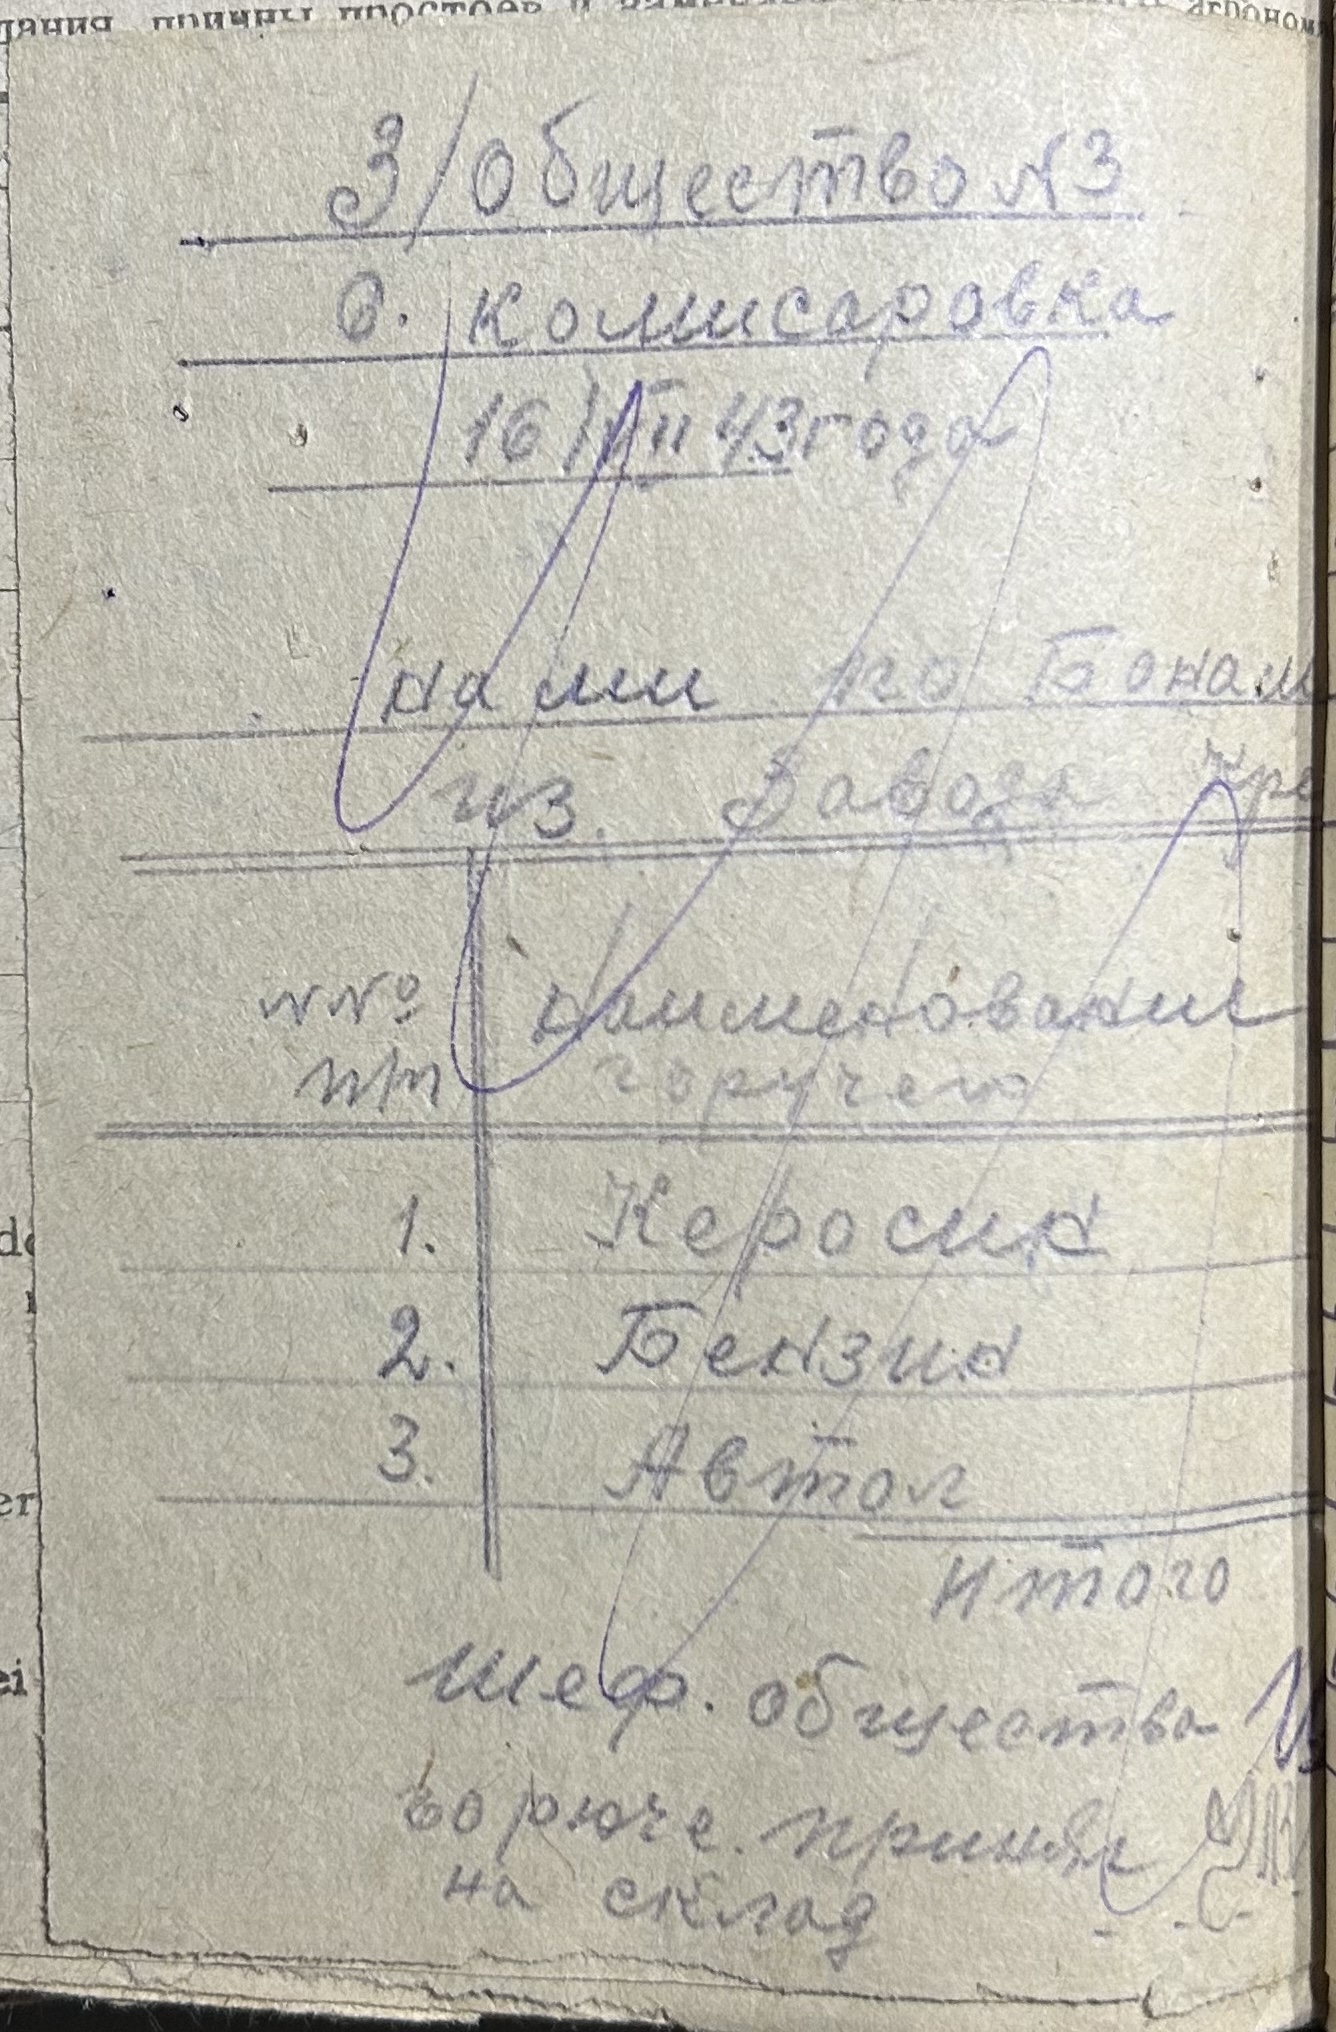 дания, причны простоев и
агроном
З/Общество №3
с. комисаровка
16/III 43 года
нами по Бонам
из. Завода
NN°
п/п
наименование
горучего
1. Керосин
2. Бензин
3. Автол
итого
шеф. общества
горюче. принял
на склад
de
er
ei